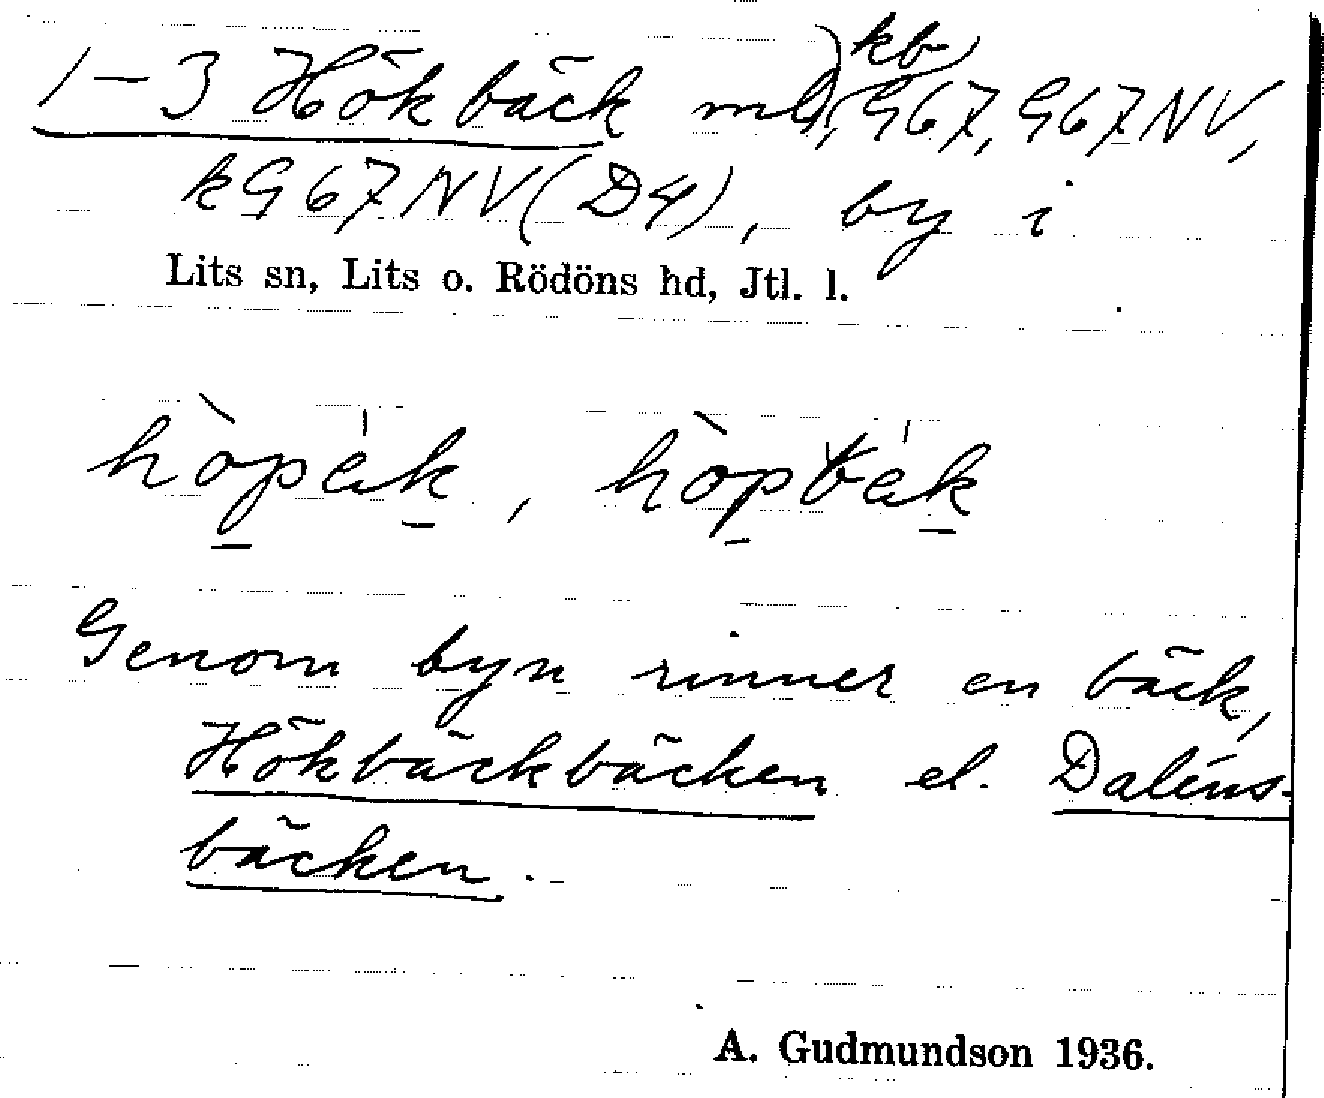 1–3 Hökbäck ml), kb, G67, G67NV,
kG67NV(D4), by i
Lits sn, Lits o. Rödöns hd, Jtl. l.
hòpàk, hòpbàk
Genom byn rinner en bäck,
Hökbäckbäcken el. Daléns-
bäcken.
A. Gudmundson 1936.